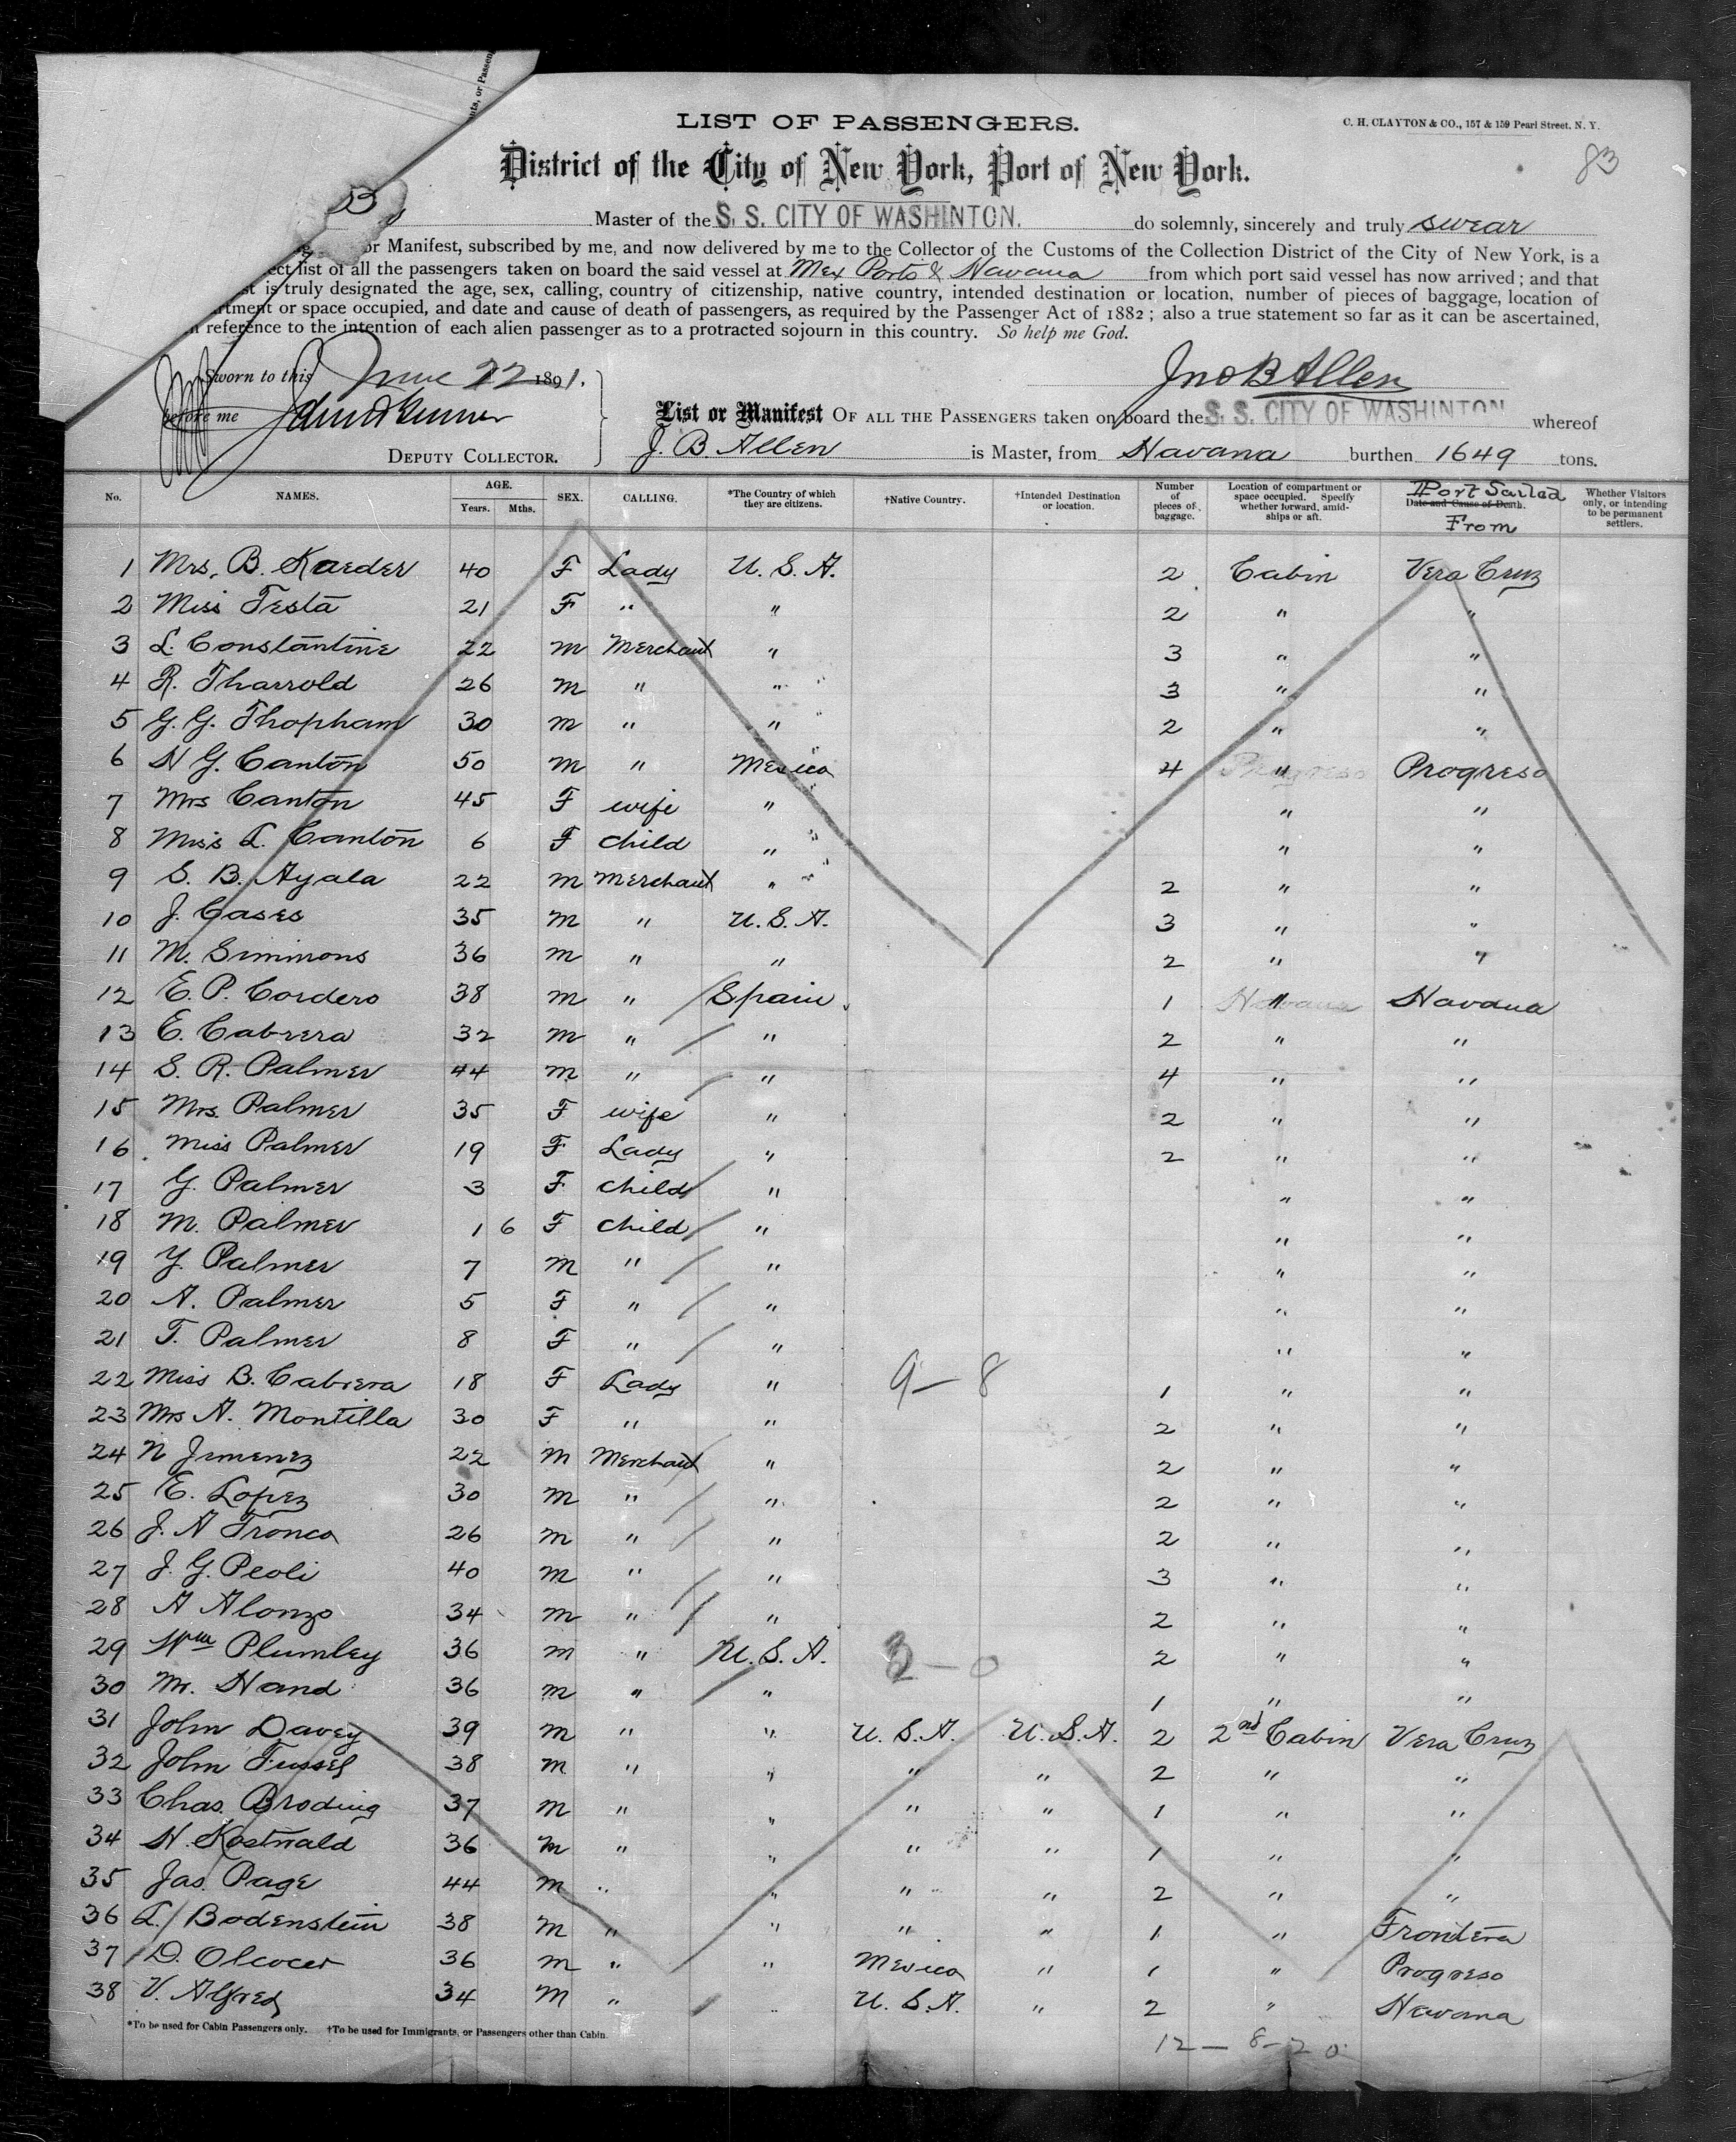 nts, or Passen
LIST OF PASSENGERS.
C. H. CLAYTON & CO., 157 & 159 Pearl Street, N. Y.
83
District of the City of New York, Port of New York.
B
Master of the S. S. CITY OF WASHINTON. do solemnly, sincerely and truly swear
or Manifest, subscribed by me, and now delivered by me to the Collector of the Customs of the Collection District of the City of New York, is a
ect list of all the passengers taken on board the said vessel at Mex Ports & Havana from which port said vessel has now arrived; and that
st is truly designated the age, sex, calling, country of citizenship, native country, intended destination or location, number of pieces of baggage, location of
rtment or space occupied, and date and cause of death of passengers, as required by the Passenger Act of 1882; also a true statement so far as it can be ascertained,
reference to the intention of each alien passenger as to a protracted sojourn in this country. So help me God.
Sworn to this June 22 1891.
Jno B Allen
before me
List or Manifest OF ALL THE PASSENGERS taken on board the S. S. CITY OF WASHINTON whereof
DEPUTY COLLECTOR.
J. B. Allen is Master, from Havana burthen 1649 tons.
No. NAMES. AGE. Years. Mths. SEX. CALLING. *The Country of which they are citizens. †Native Country. †Intended Destination or location. Number of pieces of baggage. Location of compartment or space occupied. Specify whether forward, amidships or aft. Date and Cause of Death. Port Sailed From Whether Visitors only, or intending to be permanent settlers.
1 Mrs. B. Kaeder 40 F Lady U. S. A. 2 Cabin Vera Cruz
2 Miss Testa 21 F " " 2 " "
3 L. Constantine 22 m Merchant " 3 " "
4 R. Tharrold 26 m " " 3 " "
5 G. G. Thopham 30 m " " 2 " "
6 H G. Canton 50 m " Mexico 4 Progreso " Progreso
7 Mrs Canton 45 F wife " " "
8 Miss L. Canton 6 F child " " "
9 S. B. Ayala 22 m Merchant " 2 " "
10 J. Cases 35 m " U. S. A. 3 " "
11 M. Simmons 36 m " " 2 " "
12 E. P. Cordero 38 m " Spain 1 Havana " Havana
13 E. Cabrera 32 m " " 2 " "
14 S. R. Palmer 44 m " " 4 " "
15 Mrs. Palmer 35 F wife " 2 " "
16 Miss Palmer 19 F Lady " 2 " "
17 G. Palmer 3 F child " " "
18 M. Palmer 1 6 F child " " "
19 Y. Palmer 7 m " " " "
20 A. Palmer 5 F " " " "
21 T. Palmer 8 F " " " "
22 Miss B. Cabrera 18 F Lady " 9-8 1 " "
23 Mrs A. Montilla 30 F " " 2 " "
24 N Jimenez 22 m Merchant " 2 " "
25 E. Lopez 30 m " " 2 " "
26 J. A Tronco 26 m " " 2 " "
27 J. G. Peoli 40 m " " 3 " "
28 A Alonzo 34 m " " 2 " "
29 Wm Plumley 36 m " U. S. A. - 0 2 " "
30 Mr. Hand 36 m " " 1 " "
31 John Davey 39 m " " U. S. A. U. S. A. 2 2nd Cabin Vera Cruz
32 John Fussel 38 m " " " " 2 " "
33 Chas. Broding 37 m " " " " 1 " "
34 H. Kostwald 36 m " " " " 1 " "
35 Jas. Page 44 m " " " " 2 " "
36 L. Bodenstein 38 m " " " " 1 " Frontera
37 D. Olcocer 36 m " " Mexico " 1 " Progreso
38 V. Alfred 34 m " " U. S. A. " 2 " Havana
*To be used for Cabin Passengers only. †To be used for Immigrants, or Passengers other than Cabin.
12 - 8 - 20